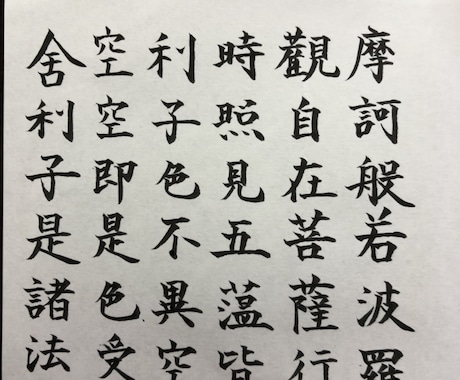 摩訶般若波羅
觀自在菩薩行
時照見五蘊皆
利子色不異空
空空即是色受
舍利子是諸法